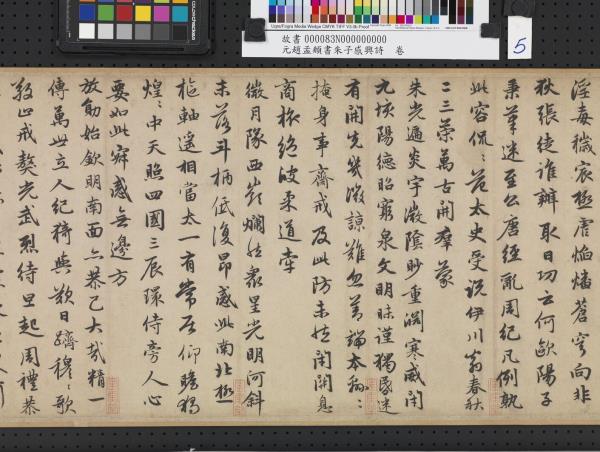 Ugra/Fogra Media Wedge CMYK-TIFF V3.0b Proof
故書 000083N000000000
元趙孟頫書朱子感興詩　卷
5
淫毒穢宸極虐焰燔蒼穹向非
狄張徒誰辦取日功云何歐陽子
秉筆迷至公唐經亂周紀凡例孰
此容侃〻范太史受說伊川翁春秋
二三策萬古開羣蒙
朱光遍炎宇微陰眇重淵寒威閉
九垓陽德昭窮泉文明昧謹獨昏迷
有開先幾微諒難忽善端本綿〻
掩身事齋戒及此防未然閉關息
商旅絕彼柔道牽
微月隊西嶺爛然衆星光明河斜
未落斗柄低復昂感此南北極
樞軸遙相當太一有常居仰瞻獨
煌〻中天照四國三辰環侍旁人心
要如此寂感無邊方
放勛始欽明南面亦恭己大哉精一
傳萬世立人紀猗歟歎日躋穆〻歌
敬止戒獒光武烈待旦起周禮恭